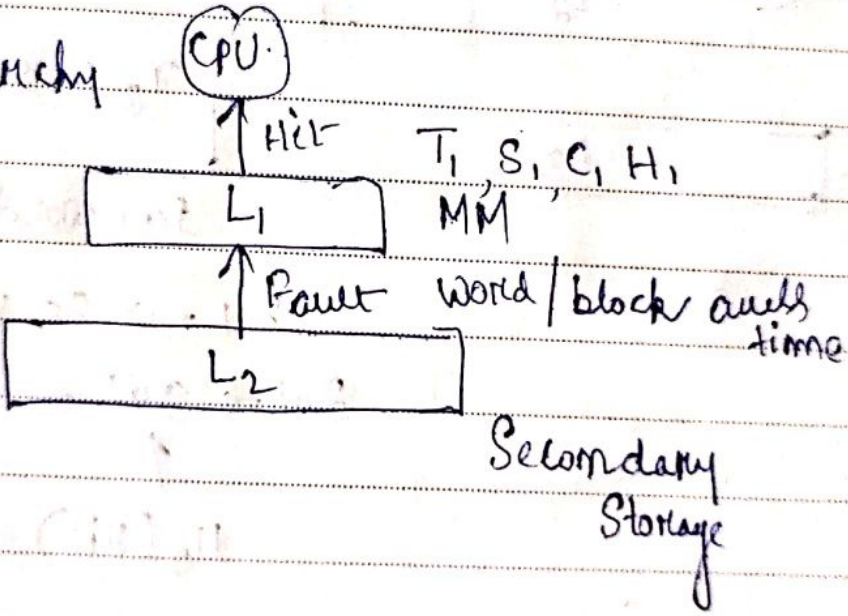 CPU.
Hit
T₁, S₁, C₁ H₁
L₁
MM
Fault word/block access
time
L₂
Secondary
Storage